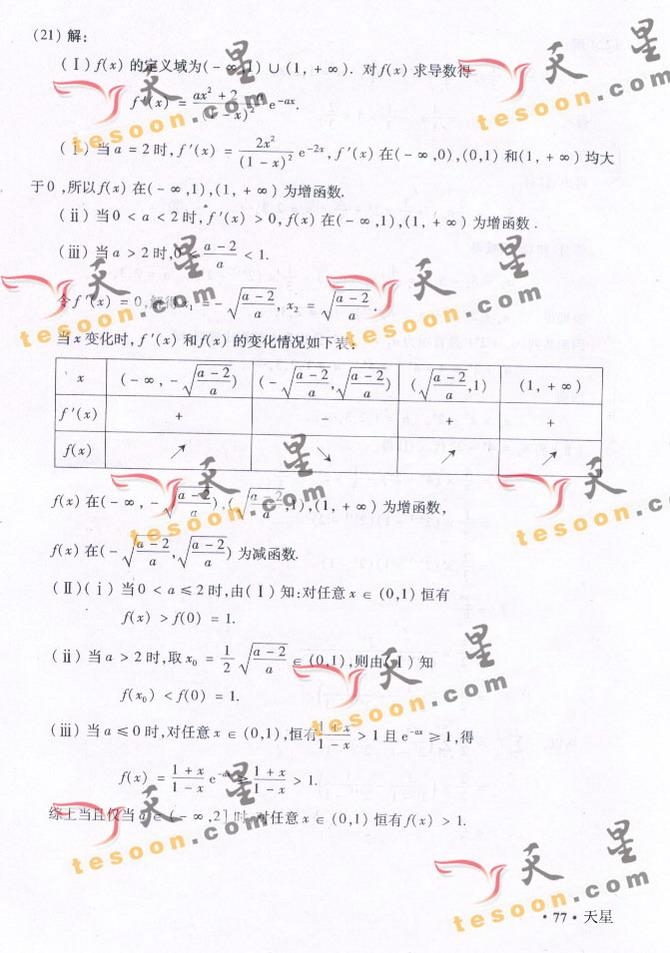 (21) 解:
(Ⅰ) f(x) 的定义域为(-∞,1) ∪ (1, +∞). 对f(x) 求导数得
f'(x) = \frac{ax² + 2 - a}{(1-x)²} e^{-ax}.
(ⅰ) 当 a = 2 时, f'(x) = \frac{2x²}{(1-x)²} e^{-2x}, f'(x) 在(-∞,0),(0,1) 和(1, +∞) 均大
于0 ,所以f(x) 在(-∞,1),(1, +∞) 为增函数.
(ⅱ) 当0 < a < 2 时, f'(x) > 0, f(x) 在(-∞,1),(1, +∞) 为增函数.
(ⅲ) 当 a > 2 时, 0 < \frac{a-2}{a} < 1.
令f'(x) = 0,解得x₁ = -\sqrt{\frac{a-2}{a}}, x₂ = \sqrt{\frac{a-2}{a}}.
当 x 变化时, f'(x) 和f(x) 的变化情况如下表:
x (-∞, -\sqrt{\frac{a-2}{a}}) (-\sqrt{\frac{a-2}{a}}, \sqrt{\frac{a-2}{a}}) (\sqrt{\frac{a-2}{a}},1) (1, +∞)
f'(x) + + +
f(x) ↗ ↘ ↗ ↗
f(x) 在(-∞, -\sqrt{\frac{a-2}{a}}),(\sqrt{\frac{a-2}{a}},1),(1, +∞) 为增函数,
f(x) 在(-\sqrt{\frac{a-2}{2}}, \sqrt{\frac{a-2}{a}}) 为减函数.
(Ⅱ)(ⅰ) 当0 < a ≤ 2 时,由(Ⅰ) 知:对任意 x ∈ (0,1) 恒有
f(x) > f(0) = 1.
(ⅱ) 当 a > 2 时,取 x₀ = \frac{1}{2}\sqrt{\frac{a-2}{a}} ∈ (0,1),则由(Ⅰ) 知
f(x₀) < f(0) = 1.
(ⅲ) 当 a ≤ 0 时,对任意 x ∈ (0,1),恒有 \frac{1+x}{1-x} > 1 且 e^{-ax} ≥ 1,得
f(x) = \frac{1+x}{1-x} e^{-ax} ≥ \frac{1+x}{1-x} > 1.
综上当且仅当 a ∈ (-∞,2] 时,对任意 x ∈ (0,1) 恒有 f(x) > 1.
· 77 · 天星
天星
tesoon.com
天星
tesoon.com
天星
tesoon.com
天星
tesoon.com
天星
tesoon.com
天星
tesoon.com
天星
tesoon.com
天星
tesoon.com
天星
tesoon.com
天星
tesoon.com